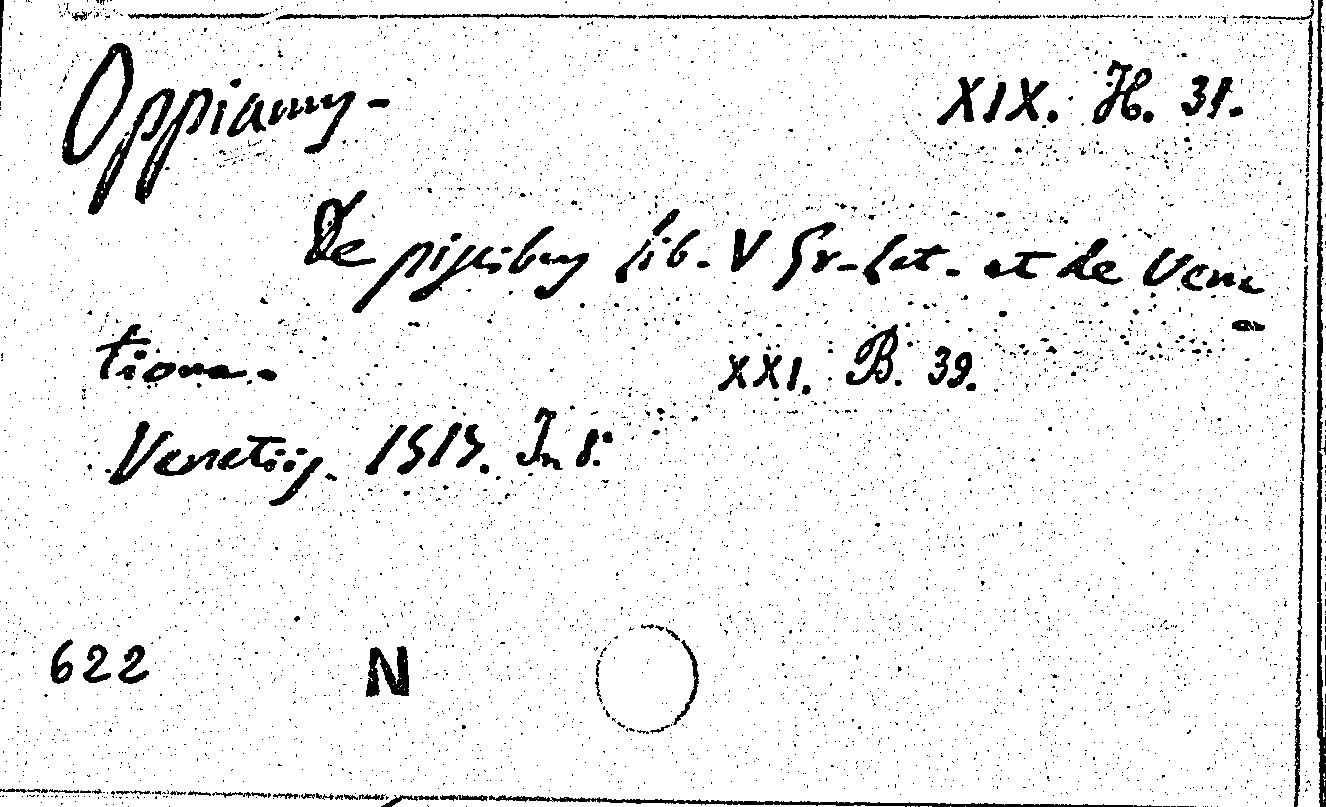 Oppianus - XIX. H. 31.
De piscibus lib. V Gr-Lat. et de Vena
tione. XXI. B. 39.
Venetiis. 1515. In 8.°
622 N